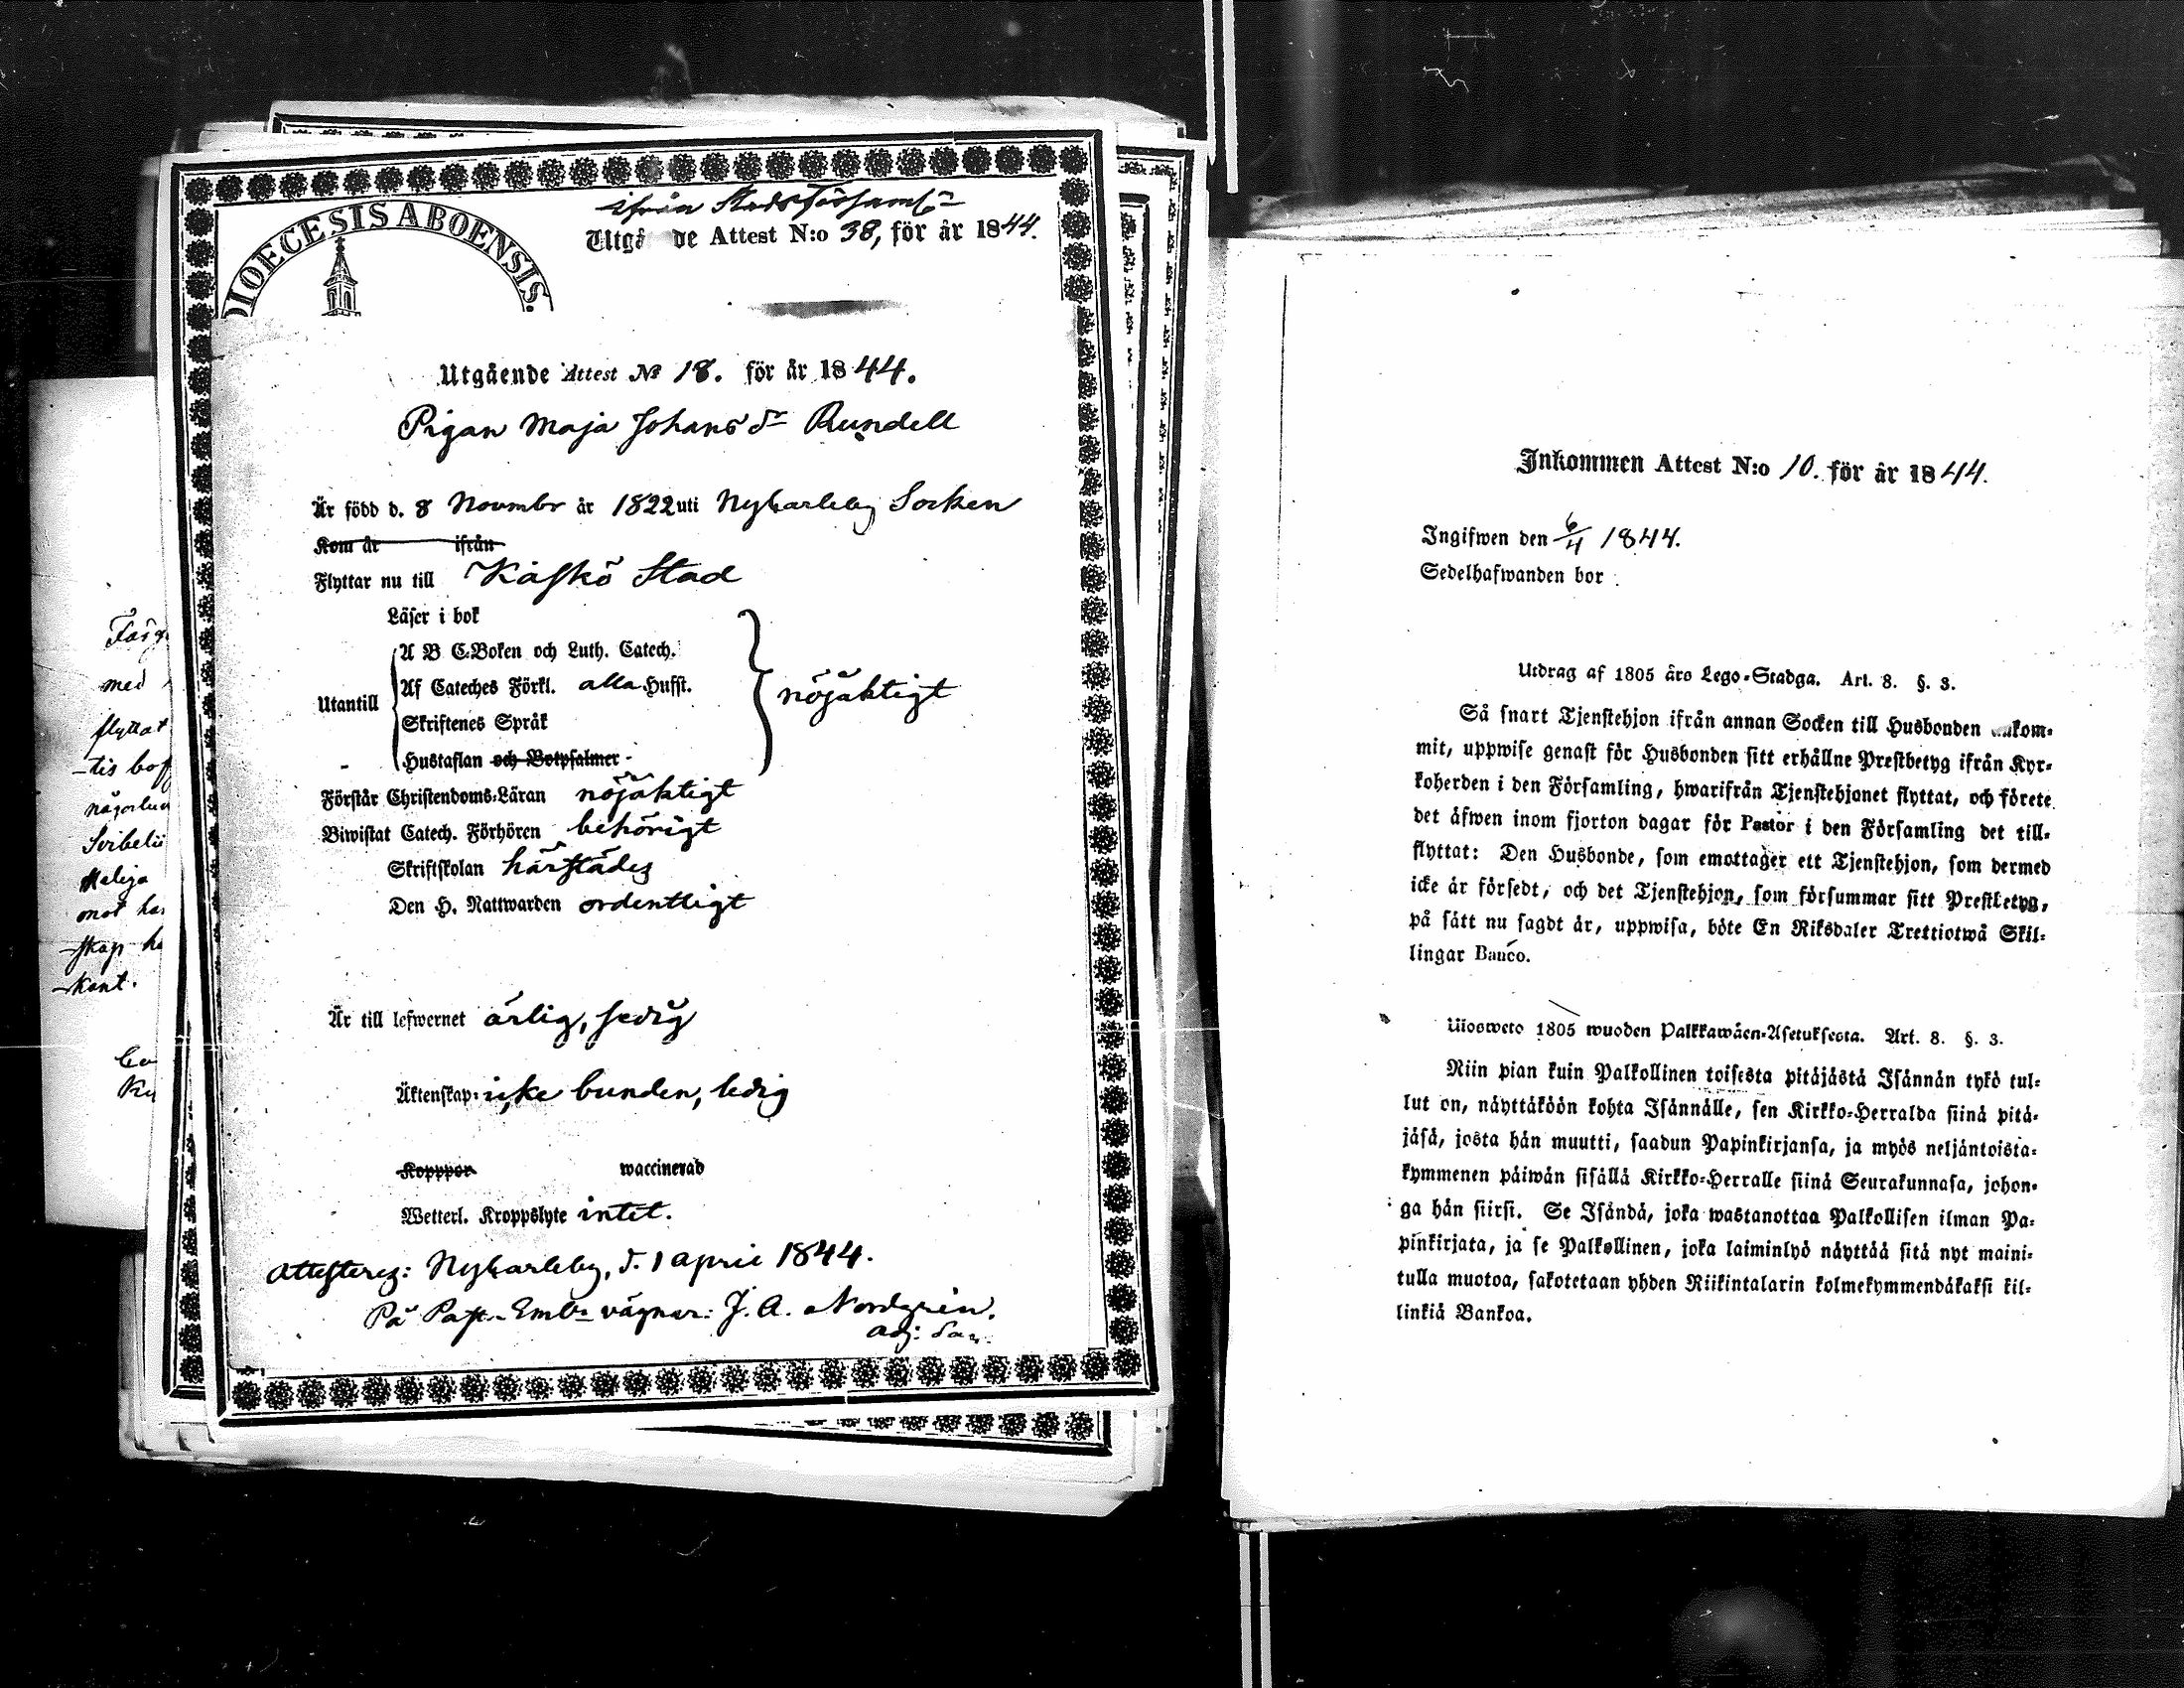 DIOECESIS ABOENSIS.
ifrån
Utgå de Attest N:o 38, för år 1844.
Utgående Attest № 18. för år 1844.
Pigan Maja Johans dr Rundell
Är född d. 8 Novmbr år 1822 uti Nykarleby Socken
Kom år ifrån
Flyttar nu till Kaskö Stad
Läser i bok
A B C-Boken och Luth. Catech.
Utantill Af Cateches Förkl. alla Hufst. nöjaktigt
Skriftenes Språk
Hustaflan och Botpsalmer
Förstår Christendoms-Läran nöjaktigt
Biwistat Catech. Förhören behörigt
Skriftskolan härstädes
Den H. Nattwarden ordentligt
Är till lefwernet ärlig, sedig
Äktenskap: icke bunden, ledig
Kopppor waccinerad
Wetterl. Kroppslyte intet.
Attesterez: Nykarleby, d. 1 April 1844.
På Past. Emb. vägnar: J. A. Nordgrén.
Adj:
med
flyttat
onot
-skap
-kant.
Inkommen Attest N:o 10. för år 1844.
Ingifwen den 6/4 1844.
Sedelhafwanden bor
Utdrag af 1805 års Lego-Stadga. Art. 8. §. 3.
Så snart Tjenstehjon ifrån annan Socken till Husbonden ankom-
mit, uppwise genast för Husbonden sitt erhållne Prestbetyg ifrån Kyr-
koherden i den Församling, hwarifrån Tjenstehjonet flyttat, och förete
det äfwen inom fjorton dagar för Pastor i den Församling det till-
flyttat: Den Husbonde, som emottager ett Tjenstehjon, som dermed
icke är försedt, och det Tjenstehjon, som försummar sitt Prestbetyg,
på sätt nu sagdt är, uppwisa, böte En Riksdaler Trettiotwå Skil-
lingar Banco.
Ulosweto 1805 wuoden Palkkawäen-Asetuksesta. Art. 8. §. 3.
Niin pian kuin Palkollinen toisesta pitäjästä Isännän tykö tul-
lut on, näyttäköön kohta Isännälle, sen Kirkko-Herralda siinä pitä-
jäsä, josta hän muutti, saadun Papinkirjansa, ja myös neljäntoista-
kymmenen päiwän sisällä Kirkko-Herralle siinä Seurakunnasa, johon-
ga hän siirsi. Se Isändä, joka wastanottaa Palkollisen ilman Pa-
pinkirjata, ja se Palkollinen, joka laiminlyö näyttää sitä nyt maini-
tulla muotoa, sakotetaan yhden Riikintalarin kolmekymmendäkaksi kil-
linkiä Bankoa.